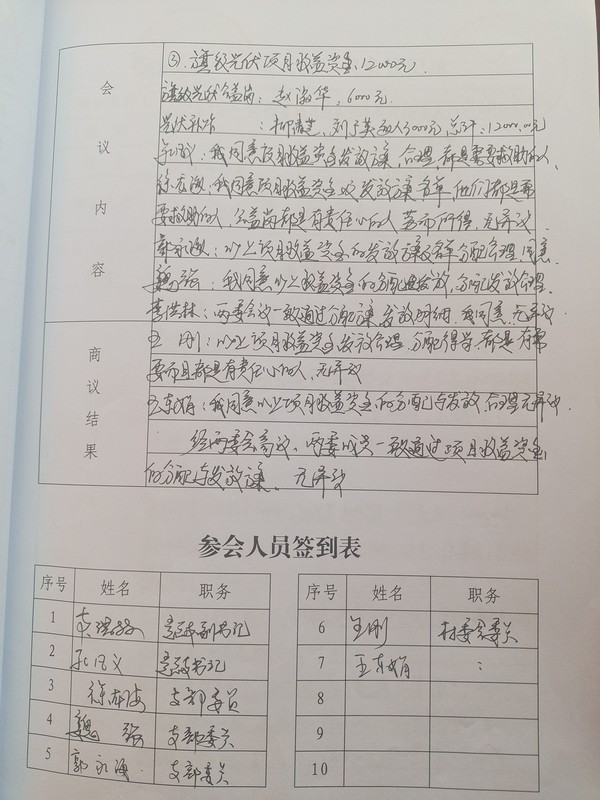 会议内容
③.旗级光伏项目收益资金12000元.
旗级光伏公益岗:赵淑华,6000元.
光伏补贴:柳 ,刘子英每人3000元,总计:12000.00元
孔凡义:我同意项目收益资金发放方案,合理,都是需要救助的人.
徐东海:我同意项目收益资金的发放方案名单,他们都是需
要救助的人,公益岗都是有责任心的人,劳有所得,无异议.
郭永海:以上项目收益资金的发放方案及名单分配合理,同意.
魏强:我同意以上收益资金的分配与发放,分配发放合理.
李洪林:两委会议一致通过分配方案,发放明细,我同意,无异议
商议结果
王刚:以上项目收益资金发放合理,分配得当,都是有需
要而且都是有责任心的人,无异议
王东娟:我同意以上项目收益资金的分配与发放,合理无异议.
经两委会商议,两委成员一致通过项目收益资金
的分配与发放方案.无异议
参会人员签到表
序号 姓名 职务 序号 姓名 职务
1 李洪林 总支副书记 6 王刚 村委会委员
2 孔凡义 总支书记 7 王东娟 :
3 徐东海 支部委员 8
4 魏强 支部委员 9
5 郭永海 支部委员 10